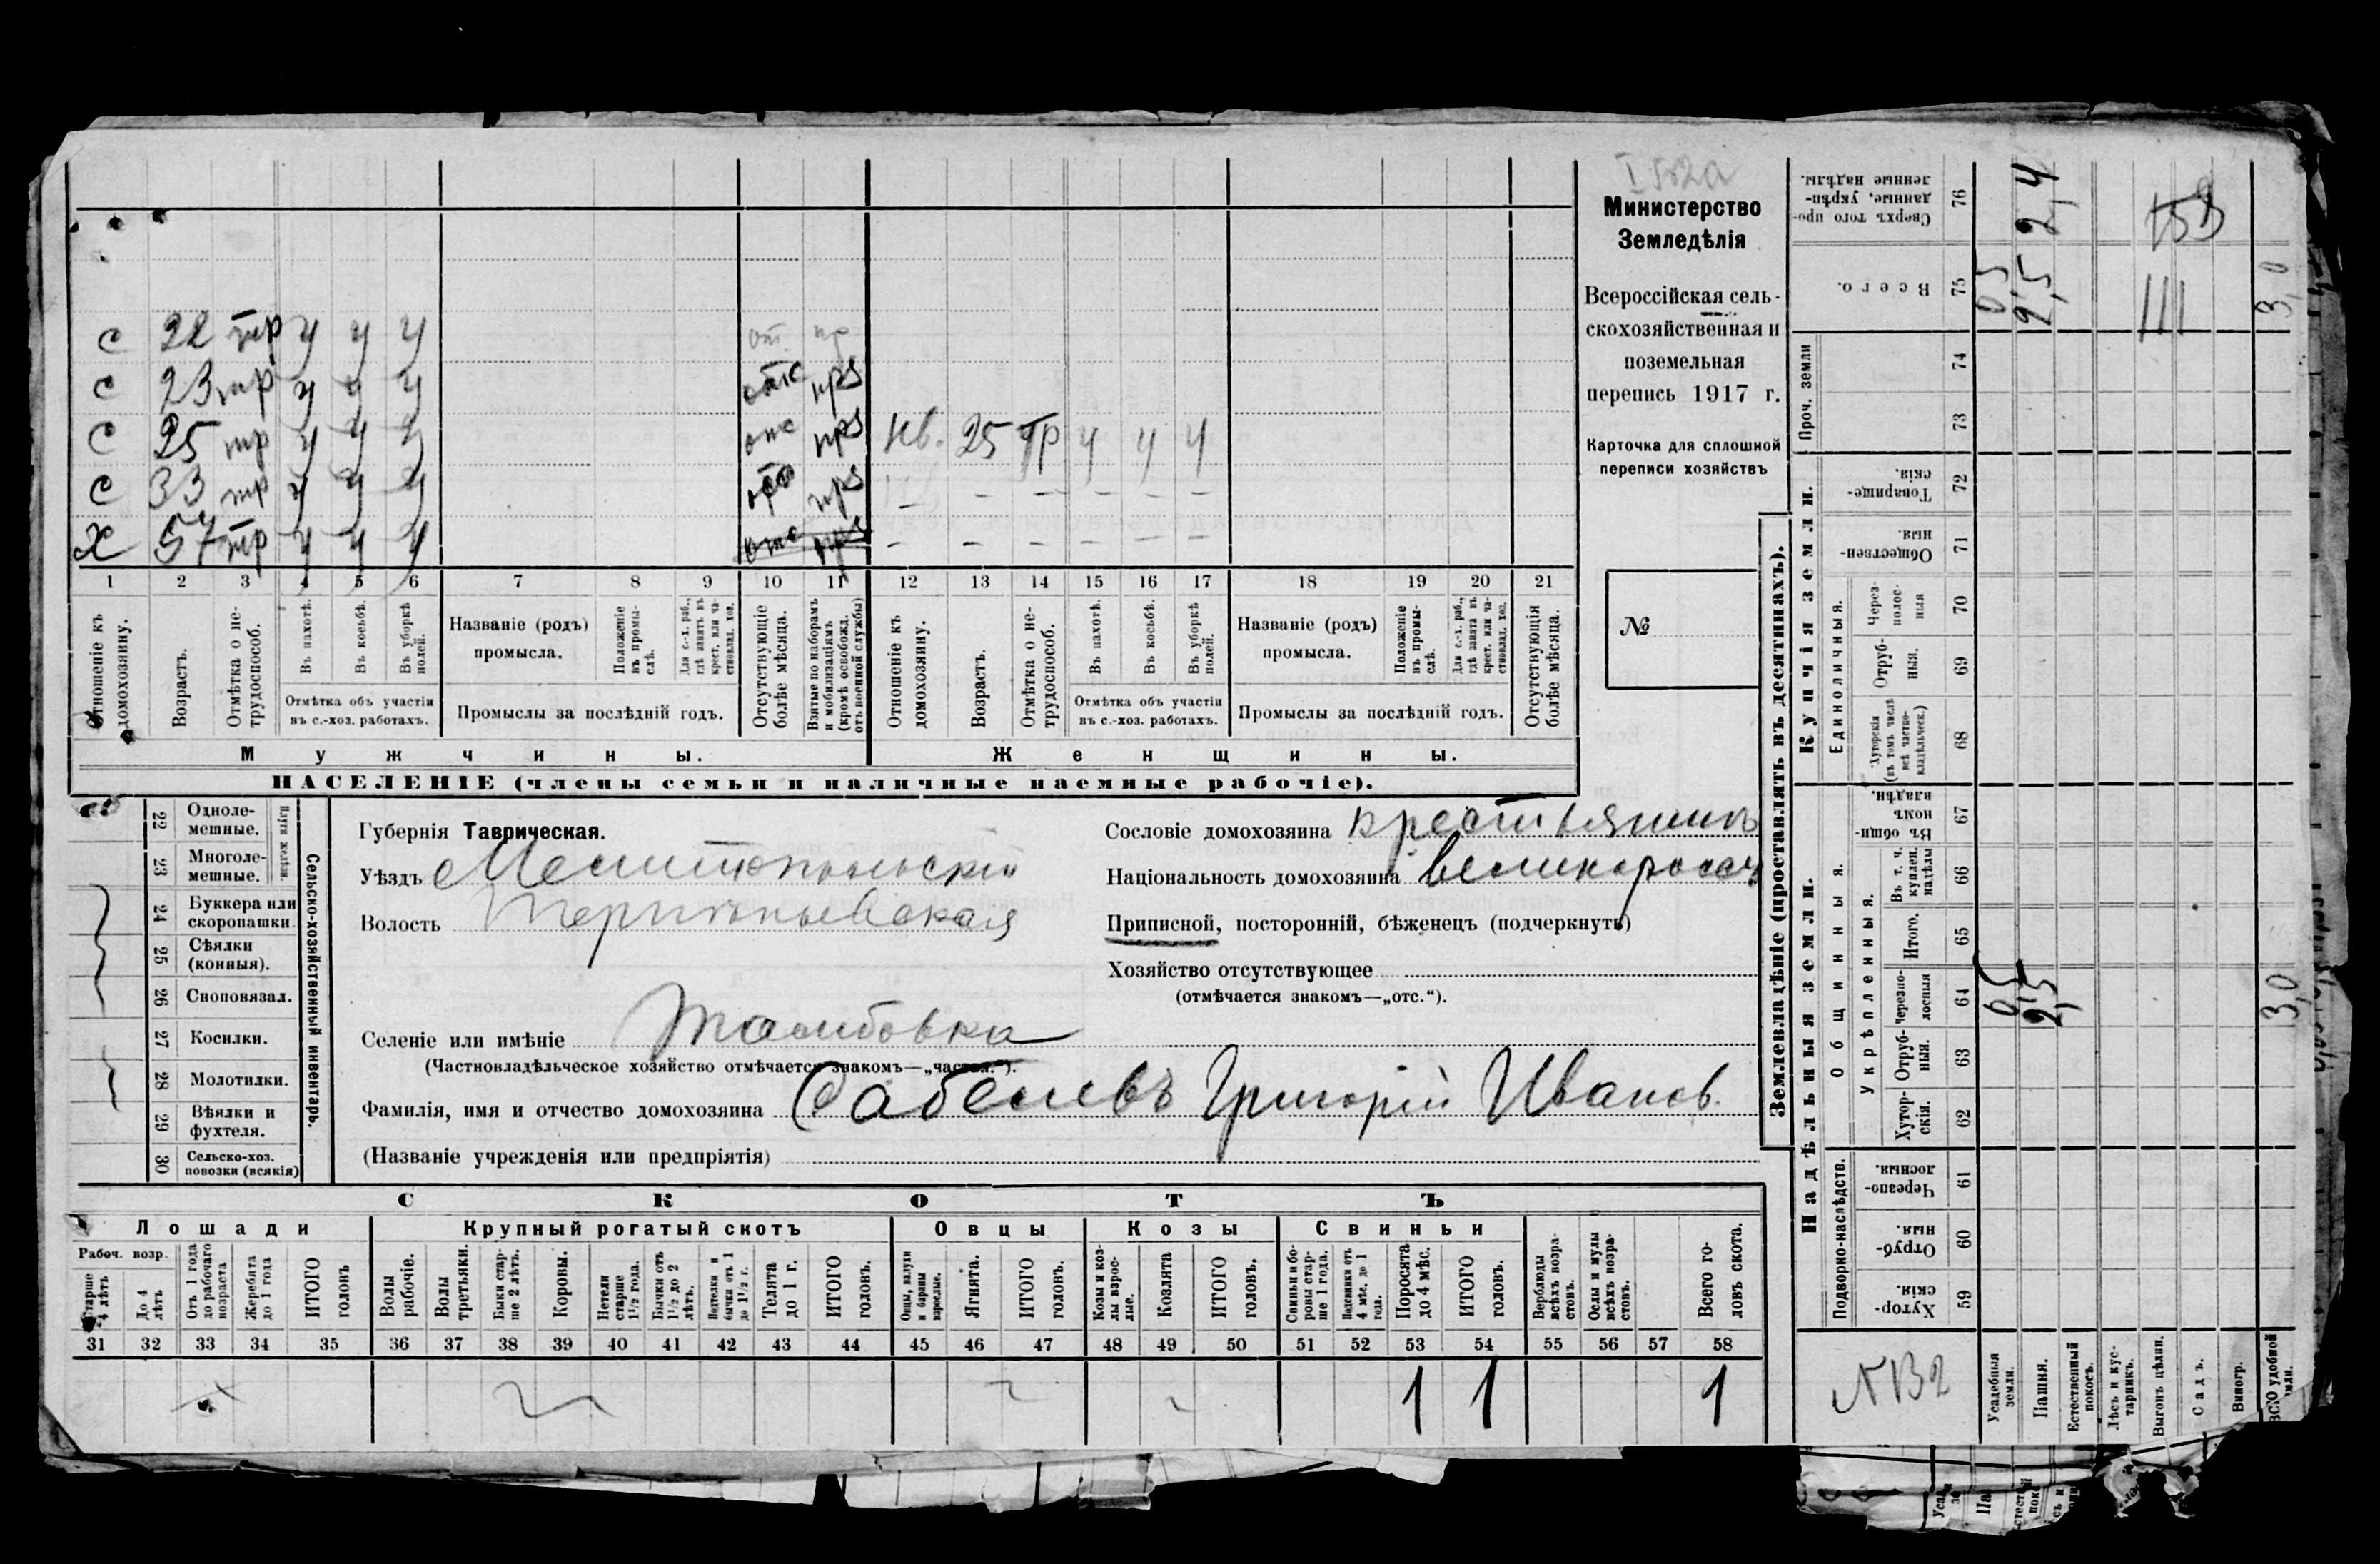 Министерство
Земледѣлія
Всероссійская сель-
скохозяйственная и
поземельная
перепись 1917 г.
Карточка для сплошной
переписи хозяйствъ
№
с 22 тр у у у от. пр
с 23 тр у у у отс прз
с 25 тр у у у отс прз нв. 25 тр у у у
с 33 тр у у у отс прз – – – – – –
х 57 тр у у у отс прз – – – – – –
1 2 3 4 5 6 7 8 9 10 11 12 13 14 15 16 17 18 19 20 21
Отношеніе къ домохозяину.
Возрастъ.
Отмѣтка о не-трудоспособ.
Въ пахотѣ.
Въ косьбѣ.
Въ уборкѣ полей.
Отмѣтка объ участіи въ с.-хоз. работахъ.
Названіе (родъ) промысла.
Положеніе въ промы-слѣ.
Для с.-х. раб., гдѣ занятъ въ крест. или ча-стновлад. хоз.
Промыслы за послѣдній годъ.
Отсутствующіе болѣе мѣсяца.
Взятые по наборамъ и мобилизаціямъ (кромѣ освобожд. отъ военной службы)
Отношеніе къ домохозяину.
Возрастъ.
Отмѣтка о не-трудоспособ.
Въ пахотѣ.
Въ косьбѣ.
Въ уборкѣ полей.
Отмѣтка объ участіи въ с.-хоз. работахъ.
Названіе (родъ) промысла.
Положеніе въ промы-слѣ.
Для с.-х. раб., гдѣ занята въ крест. или ча-стновлад. хоз.
Промыслы за послѣдній годъ.
Отсутствующія болѣе мѣсяца.
Мужчины. Женщины.
НАСЕЛЕНІЕ (члены семьи и наличные наемные рабочіе).
22 Одноле-мешные.
23 Многоле-мешные.
Плуги желѣзн.
24 Буккера или скоропашки.
25 Сѣялки (конныя).
26 Сноповязал.
27 Косилки.
28 Молотилки.
29 Вѣялки и фухтеля.
30 Сельско-хоз. повозки (всякія)
Сельско-хозяйственный инвентарь.
Губернія Таврическая.
Уѣздъ Мелитопольскій
Волость
Селеніе или имѣніе Тамбовка
(Частновладѣльческое хозяйство отмѣчается знакомъ—„частн.").
Фамилія, имя и отчество домохозяина Григорій Иванов.
(Названіе учрежденія или предпріятія)
Сословіе домохозяина крестьянинъ
Національность домохозяина великоросс
Приписной, посторонній, бѣженецъ (подчеркнуть)
Хозяйство отсутствующее
(отмѣчается знакомъ—„отс.").
СКОТЪ
Лошади Крупный рогатый скотъ Овцы Козы Свиньи
Рабоч. возр.
Старше 4 лѣтъ
До 4 лѣтъ
Отъ 1 года до рабочаго возраста
Жеребята до 1 года
ИТОГО головъ
Волы рабочіе.
Волы третьяки.
Быки стар-ше 2 лѣтъ.
Коровы.
Нетели старше 1½ года.
Бычки отъ 1½ до 2 лѣтъ.
Подтелки и бычки отъ 1 до 1½ г.
Телята до 1 г.
ИТОГО головъ.
Овцы, валухи и бараны взрослые.
Ягнята.
ИТОГО головъ.
Козы и коз-лы взрос-лые.
Козлята
ИТОГО головъ.
Свиньи и бо-ровы стар-ше 1 года.
Подсвинки отъ 4 мѣс. до 1 года.
Поросята до 4 мѣс.
ИТОГО головъ.
Верблюды всѣхъ возра-стовъ.
Ослы и мулы всѣхъ возра-стовъ.
Всего го-ловъ скота.
31 32 33 34 35 36 37 38 39 40 41 42 43 44 45 46 47 48 49 50 51 52 53 54 55 56 57 58
1 1 1
Землевладѣніе (проставлять въ десятинахъ).
Надѣльныя земли. Купчія земли. Проч. земли
Подворно-наслѣдств.
Общинныя.
Укрѣпленныя.
Единоличныя.
Хутор-скія. 59
Отруб-ныя. 60
Черезпо-лосныя. 61
Хутор-скія. 62
Отруб-ныя. 63
Черезпо-лосныя 64
Итого. 65
Въ т. ч. куплен. надѣлы 66
Въ общи-номъ владѣн. 67
Хуторскія (въ томъ числѣ всѣ частно-владѣльческ.) 68
Отруб-ныя. 69
Через-полос-ныя 70
Обществен-ныя. 71
Товарище-скія. 72
73
74
Всего. 75
Сверхъ того про-данные, укрѣп-ленные надѣлы. 76
N 132
Усадебныя земли. 0,5 0,5
Пашня. 2,5 2,5 2,4
Естественный покосъ.
Лѣсъ и кус-тарникъ.
Выгонъ цѣлин.
Садъ.
Виногр.
ВСЕГО удобной земли. 3,0 3,0